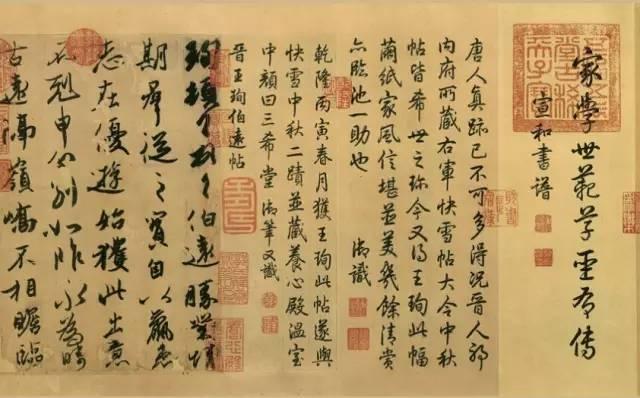 家學世範草聖有傳
宣和書譜
唐人真跡已不可多得況晉人耶
內府所藏右軍快雪帖大令中秋
帖皆希世之珍今又得王珣此幅
繭紙家風信堪並美幾餘清賞
亦臨池一助也 御識
乾隆丙寅春月獲王珣此帖遂與
快雪中秋二蹟並藏養心殿溫室
中顏曰三希堂 御筆又識
晉王珣伯遠帖
珣頓首頓首伯遠勝業情
期群從之寶自以羸患
志在優遊始獲此出意
不剋申分別如昨永為疇
古遠隔嶺嶠不相瞻臨